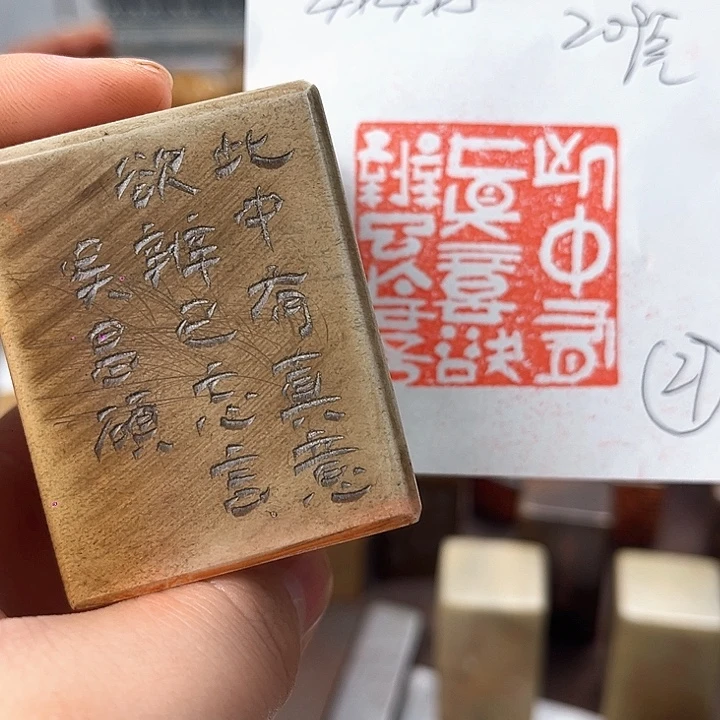 此中有真意
欲辨已忘言
吴昌碩
此中有
真意欲
辨已忘言